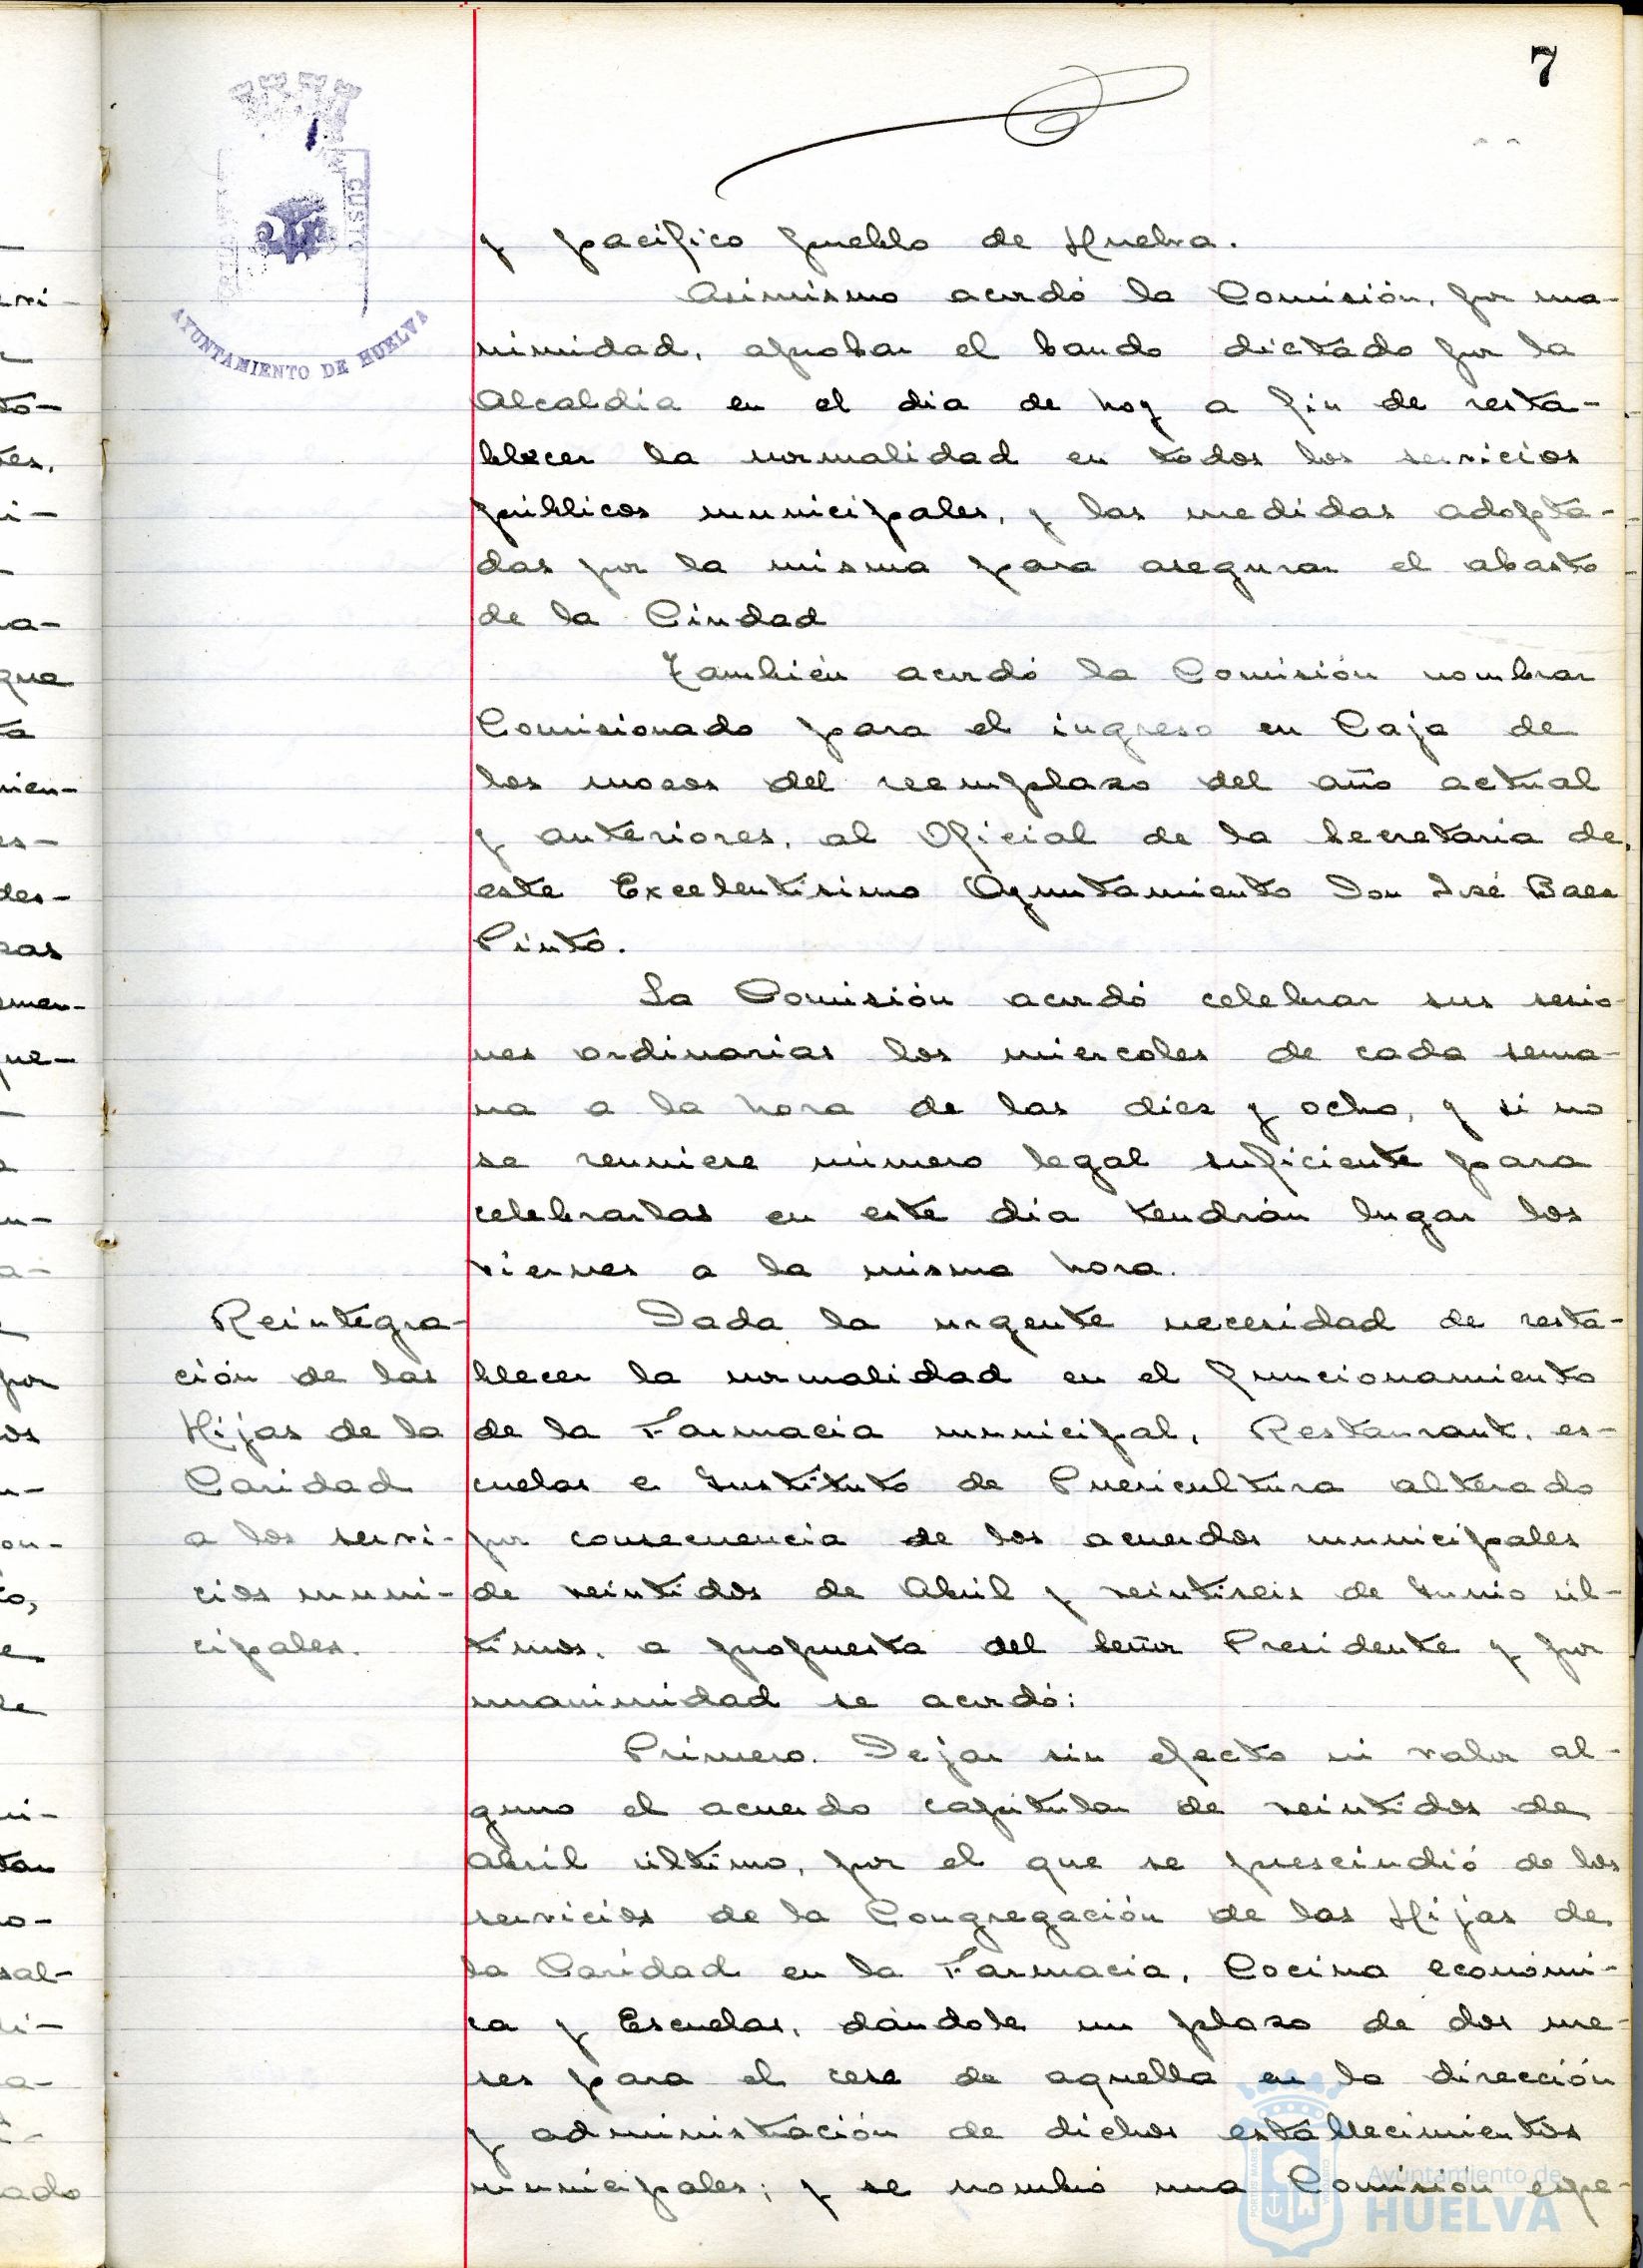 7
CUSTO
AYUNTAMIENTO DE HUELVA
y pacífico pueblo de Huelva.
Asimismo acordó la Comisión, por una-
nimidad, aprobar el bando dictado por la
Alcaldía en el dia de hoy a fin de resta-
blecer la normalidad en todos los servicios
públicos municipales, y las medidas adopta-
das por la misma para asegurar el abasto
de la Ciudad
También acordó la Comisión nombrar
Comisionado para el ingreso en Caja de
los mozos del reemplazo del año actual
y anteriores, al Oficial de la Secretaria de
este Excelentísimo Ayuntamiento Don José Baez
Pinto.
La Comisión acordó celebrar sus sesio-
nes ordinarias los miercoles de cada sema-
na a la hora de las diez y ocho, y si no
se reuniese número legal suficiente para
celebrarlas en este día tendrán lugar los
viernes a la misma hora.
Reintegra-
ción de las
Hijas de la
Caridad
a los servi-
cios muni-
cipales.
Dada la urgente necesidad de resta-
blecer la normalidad en el funcionamiento
de la Farmacia municipal, Restaurant, es-
cuelas e Instituto de Puericultura alterado
por consecuencia de los acuerdos municipales
de veintidos de Abril y veintiseis de Junio úl-
timos, a propuesta del Señor Presidente y por
unanimidad se acordó:
Primero. Dejar sin efecto ni valor al-
guno el acuerdo capitular de veintidos de
Abril último, por el que se prescindió de los
servicios de la Congregación de las Hijas de
la Caridad en la Farmacia, Cocina económi-
ca y Escuelas, dándole un plazo de dos me-
ses para el cese de aquella en la dirección
y administración de dichos establecimientos
municipales; y se nombró una Comisión espe-
Ayuntamiento de
HUELVA